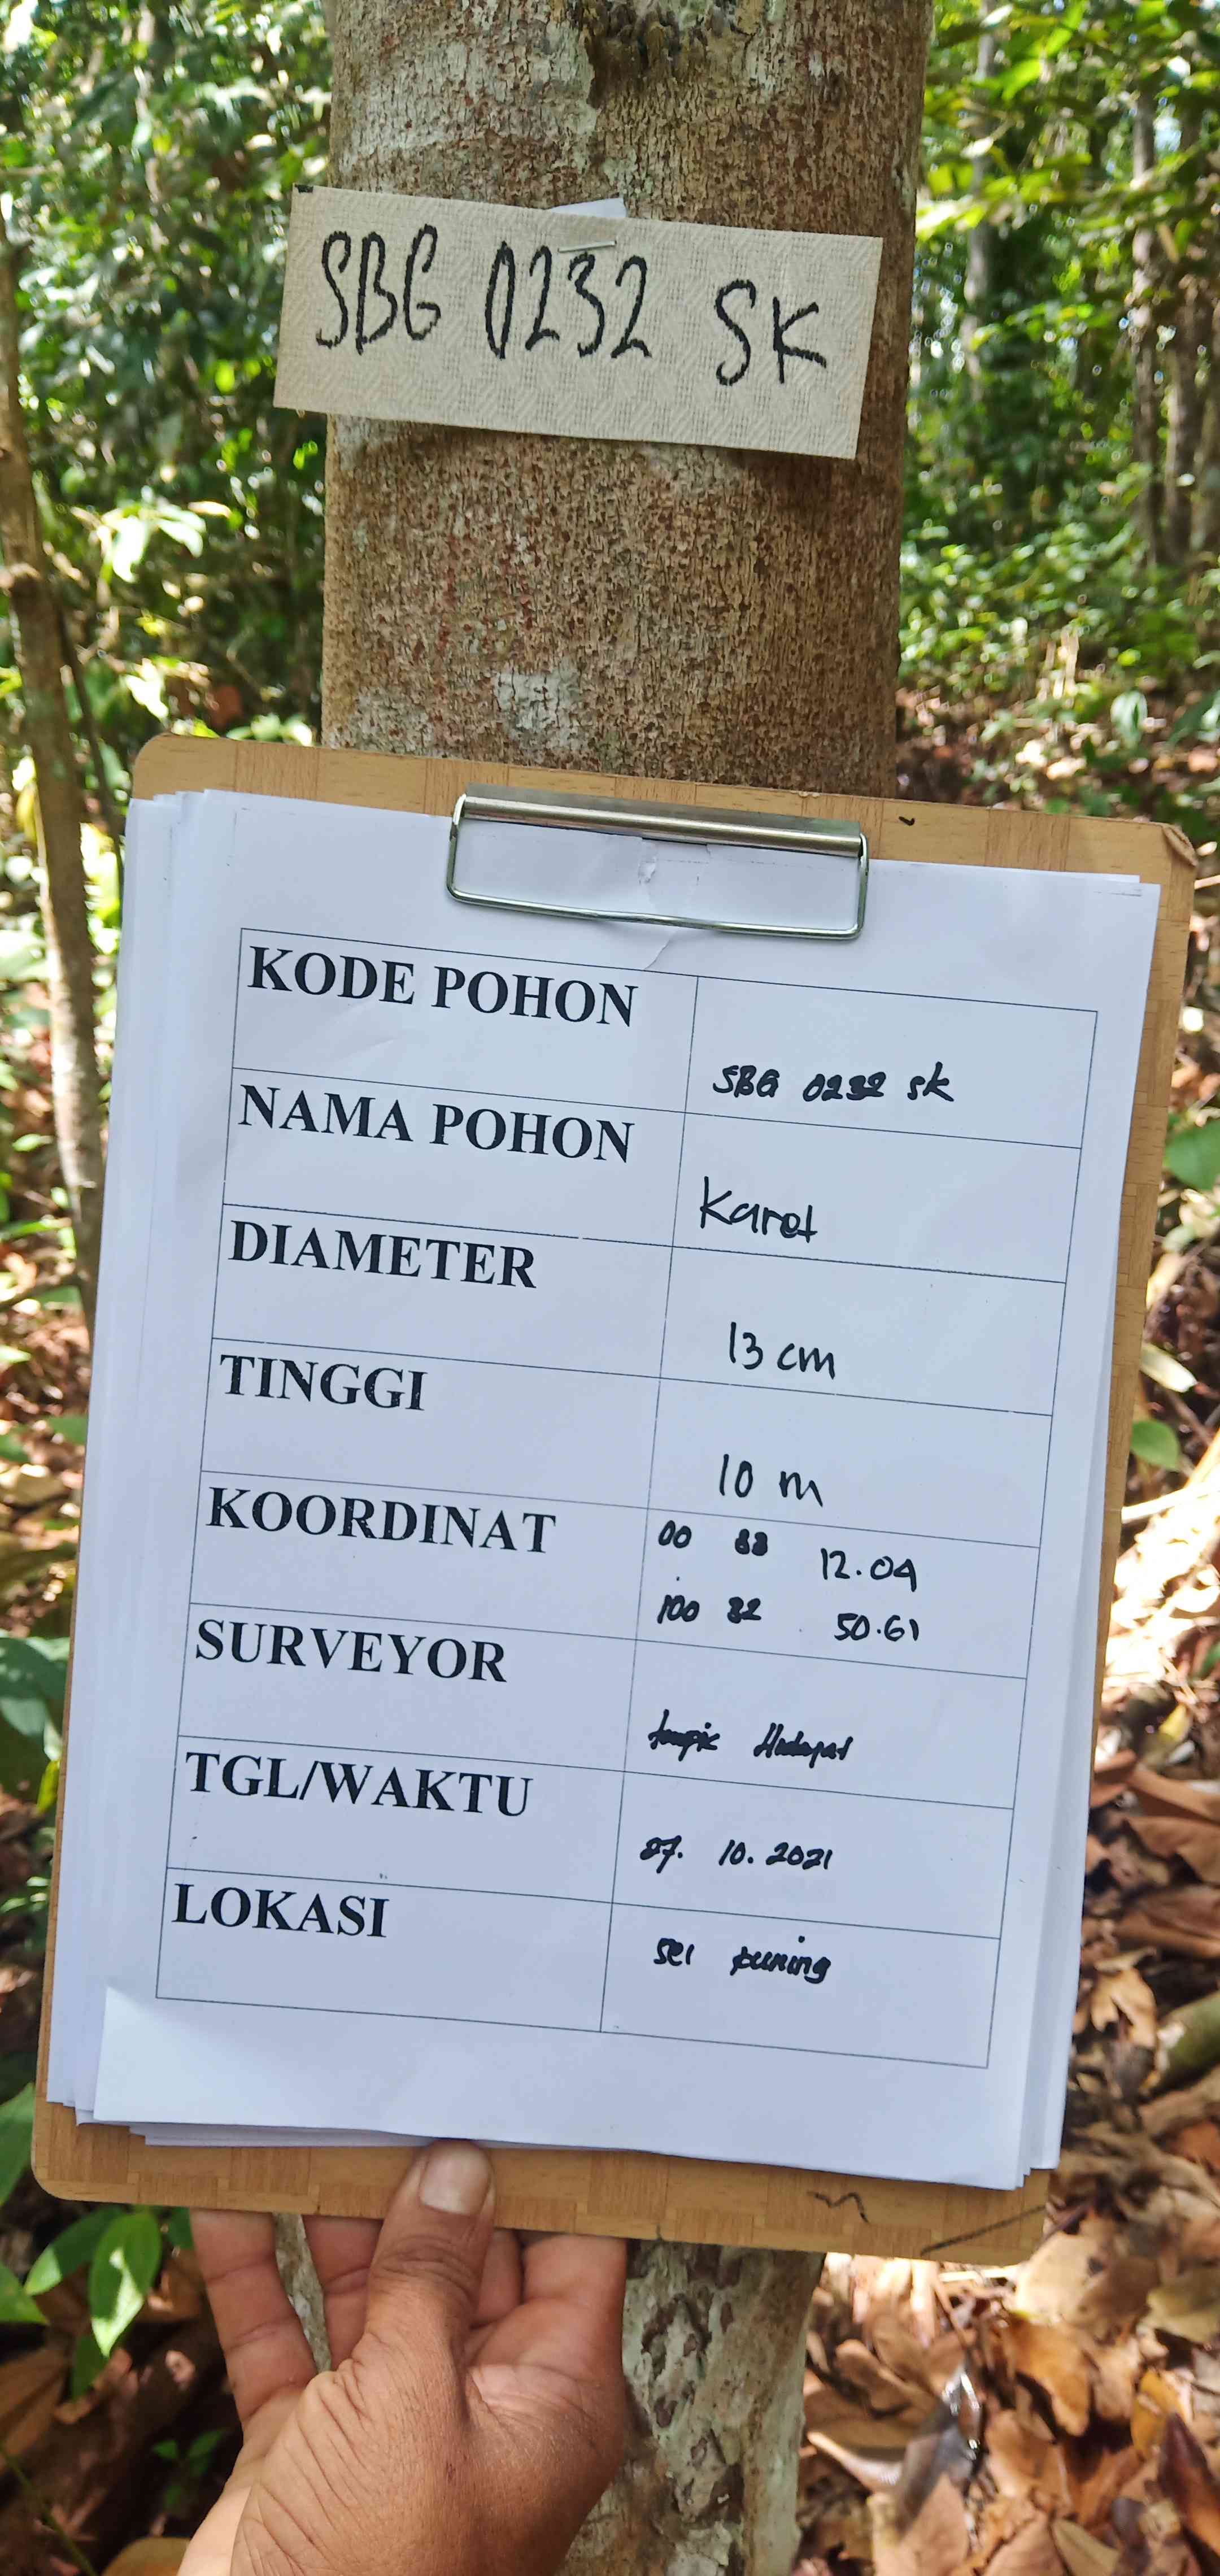 SBG 0232 SK
KODE POHON
SBG 0232 SK
NAMA POHON
Karet
DIAMETER
13 cm
TINGGI
10 m
KOORDINAT
00 12.04
100 50.61
SURVEYOR
Hidayat
TGL/WAKTU
10.2021
LOKASI
sei kuning